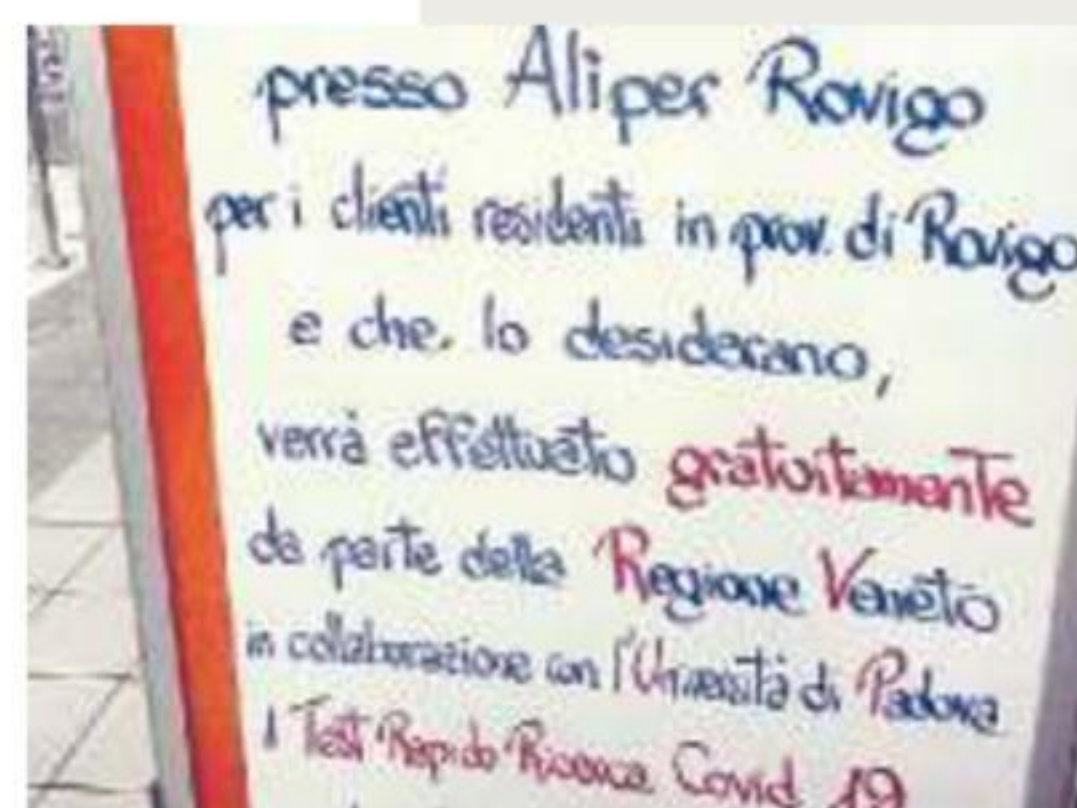 presso Aliper Rovigo
per i clienti residenti in prov. di Rovigo
e che. lo desiderano,
verrà effettuato gratuitamente
da parte della Regione Veneto
in collaborazione con l'Università di Padova
il Test Rapido Ricerca Covid 19